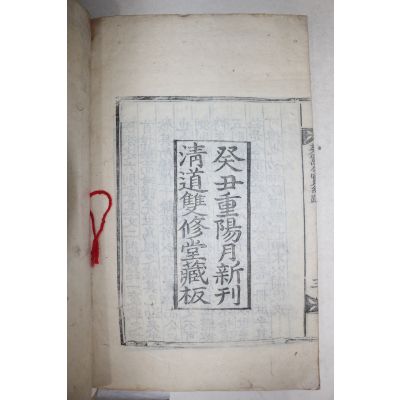 癸丑重陽月新刊
清道雙修堂藏板